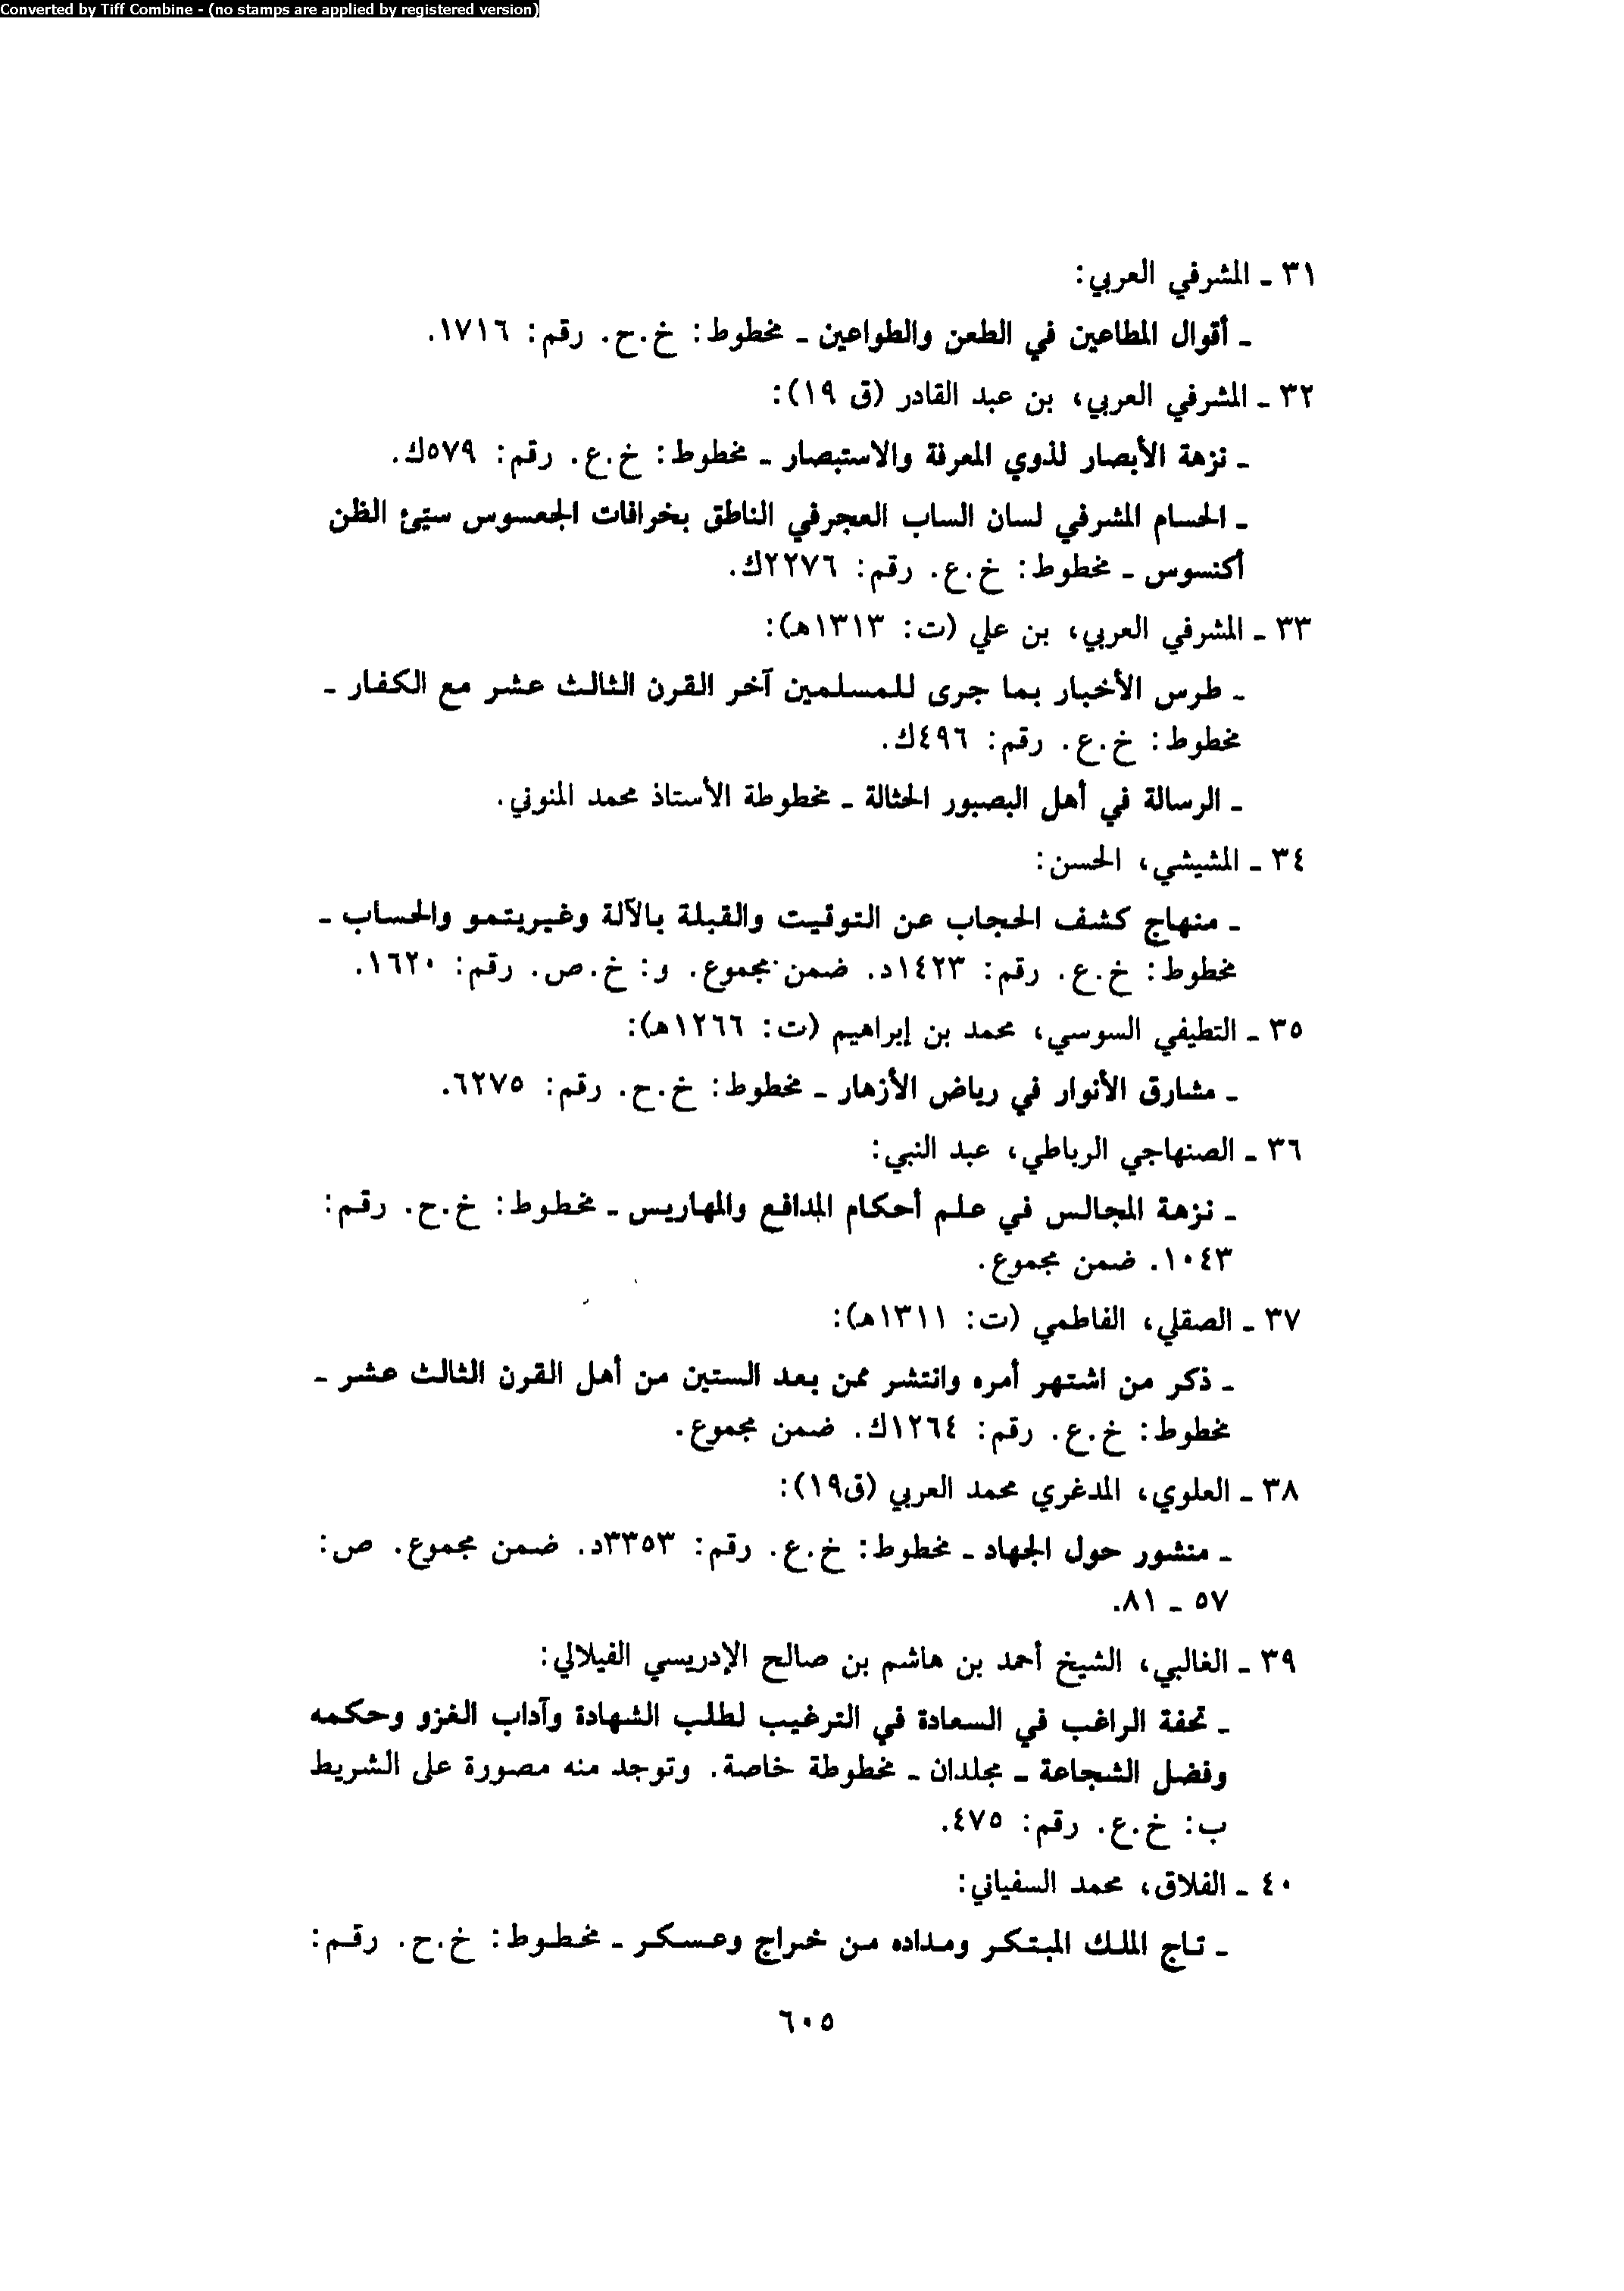 Converted by Tiff Combine - (no stamps are applied by registered version)
٣١ ـ المشرفي العربي:
ـ أقوال المطاعين في الطعن والطواعين ـ مخطوط: خ.ح. رقم: ١٧١٦.
٣٢ ـ المشرفي العربي، بن عبد القادر (ق ١٩):
ـ نزهة الأبصار لذوي المعرفة والاستبصار ـ مخطوط: خ.ع. رقم: ٥٧٩ك.
ـ الحسام المشرفي لسان الساب العجرفي الناطق بخرافات الجعسوس سيّئ الظن
أكنسوس ـ مخطوط: خ.ع. رقم: ٢٢٧٦ك.
٣٣ ـ المشرفي العربي، بن علي (ت: ١٣١٣هـ):
ـ طرس الأخبار بما جرى للمسلمين آخر القرن الثالث عشر مع الكفار ـ
مخطوط: خ.ع. رقم: ٤٩٦ك.
ـ الرسالة في أهل البصبور الحثالة ـ مخطوطة الأستاذ محمد المنوني.
٣٤ ـ المشيشي، الحسن:
ـ منهاج كشف الحجاب عن التوقيت والقبلة بالآلة وغيريتمو والحساب ـ
مخطوط: خ.ع. رقم: ١٤٢٣د. ضمن مجموع. و: خ.ص. رقم: ١٦٢٠.
٣٥ ـ التطيفي السوسي، محمد بن إبراهيم (ت: ١٢٦٦هـ):
ـ مشارق الأنوار في رياض الأزهار ـ مخطوط: خ.ح. رقم: ٦٢٧٥.
٣٦ ـ الصنهاجي الرباطي، عبد النبي:
ـ نزهة المجالس في علم أحكام المدافع والمهاريس ـ مخطوط: خ.ح. رقم:
١٠٤٣. ضمن مجموع.
٣٧ ـ الصقلي، الفاطمي (ت: ١٣١١هـ):
ـ ذكر من اشتهر أمره وانتشر ممن بعد الستين من أهل القرن الثالث عشر ـ
مخطوط: خ.ع. رقم: ١٢٦٤ك. ضمن مجموع.
٣٨ ـ العلوي، المدغري محمد العربي (ق١٩):
ـ منشور حول الجهاد ـ مخطوط: خ.ع. رقم: ٣٣٥٣د. ضمن مجموع. ص:
٥٧ ـ ٨١.
٣٩ ـ الغالبي، الشيخ أحمد بن هاشم بن صالح الإدريسي الفيلالي:
ـ تحفة الراغب في السعادة في الترغيب لطلب الشهادة وآداب الغزو وحكمه
وفضل الشجاعة ـ مجلدان ـ مخطوطة خاصة. وتوجد منه مصورة على الشريط
ب: خ.ع. رقم: ٤٧٥.
٤٠ ـ الفلاق، محمد السفياني:
ـ تاج الملك المبتكر ومداده من خراج وعسكر ـ مخطوط: خ.ح. رقم:
٦٠٥